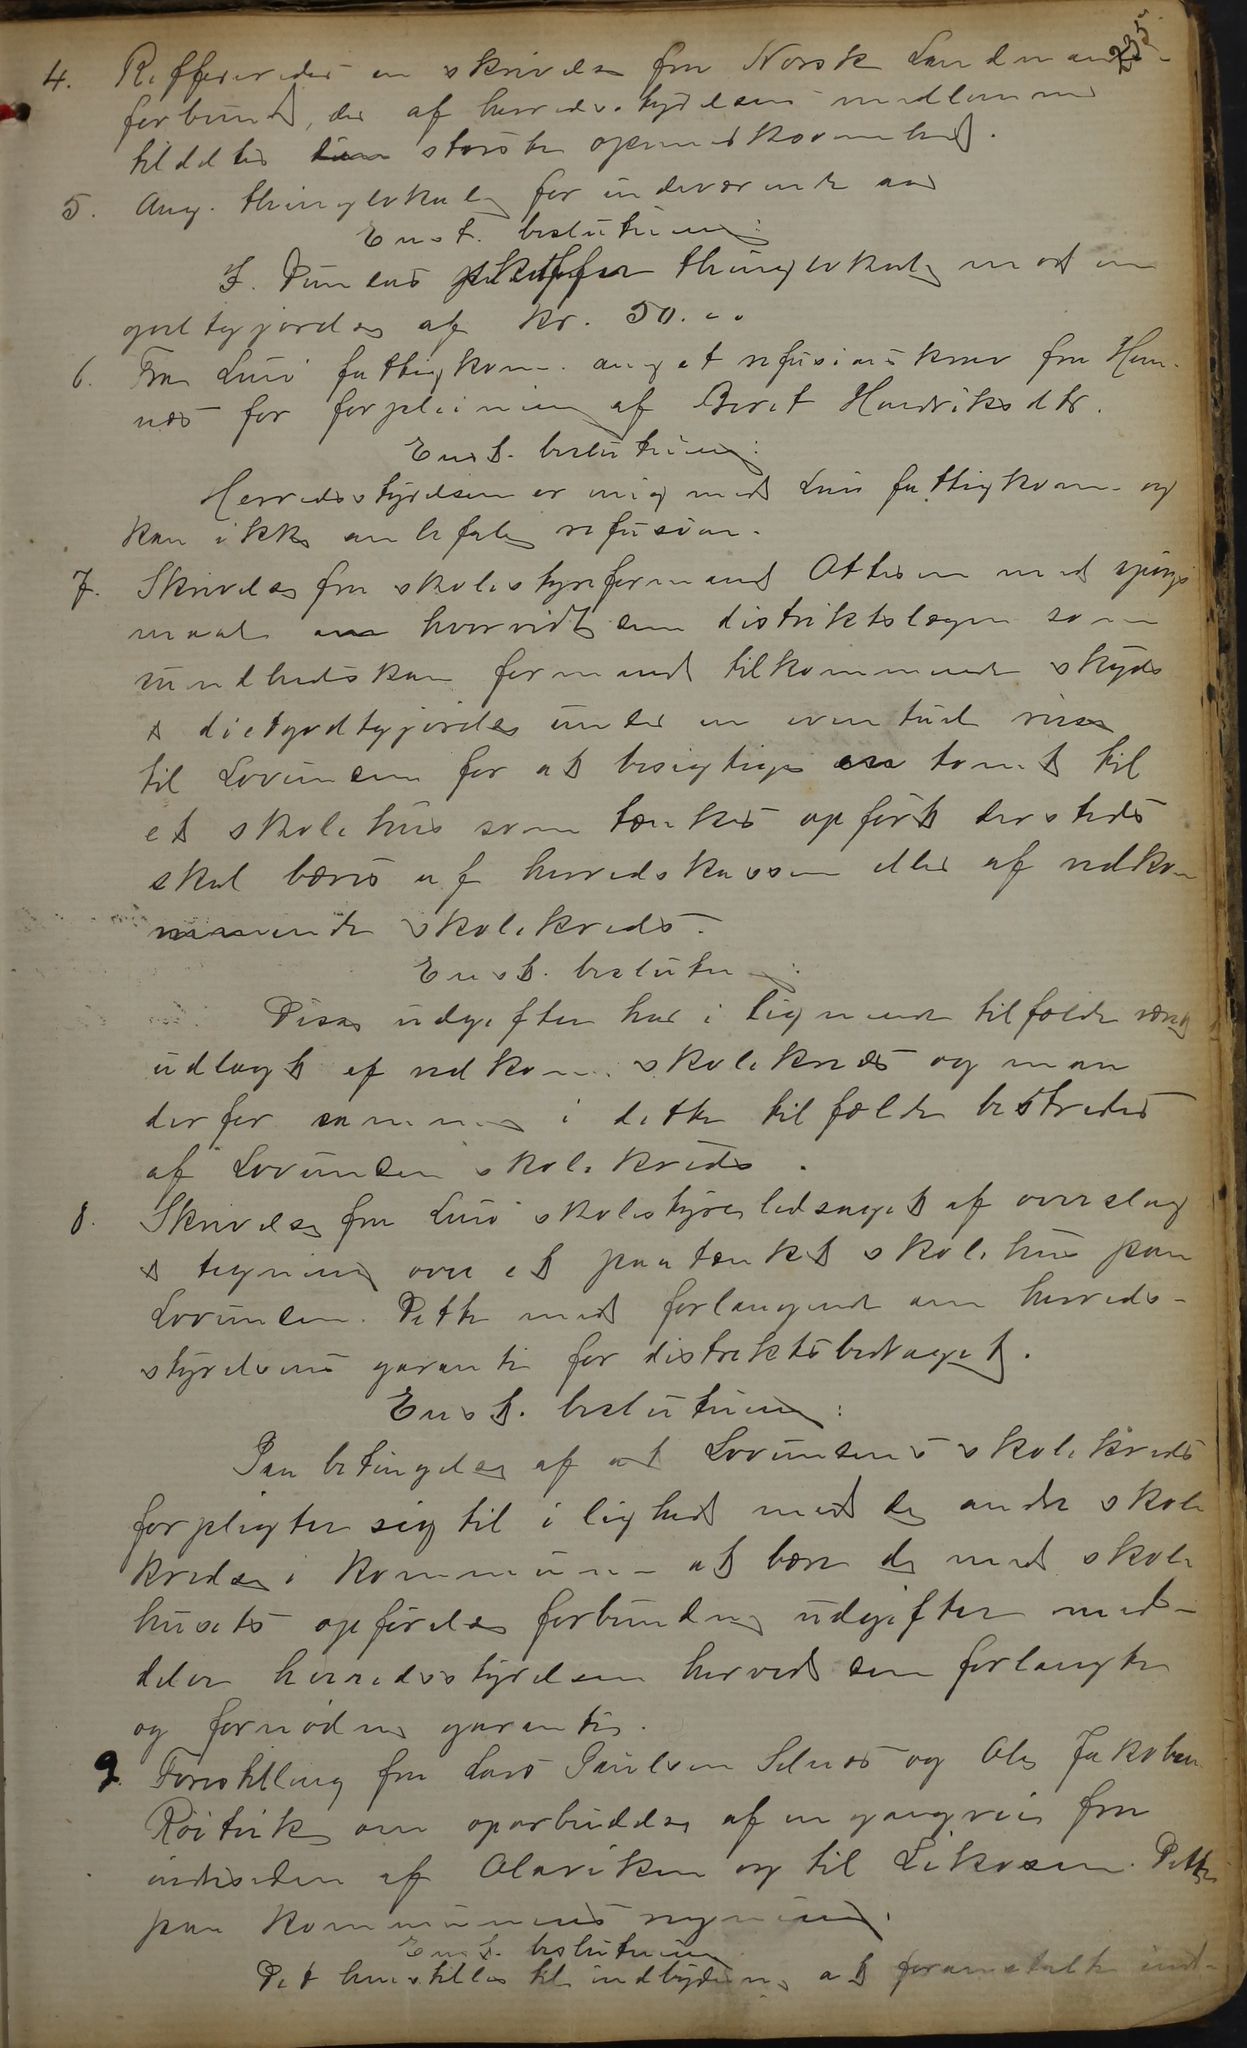 235
4. Reffereredes en skrivelse fra Norsk Landmands-
forbund, der af herredsstyrelsens medlemmer
tildeltes den største opmerksomhed.
5. Ang. thinglokale for indeværende aar
Enst. beslutning:
I. Dunens skaffer thinglokale mod en
godtgjørelse af kr. 50.00
6. Fra Lurø fattigkom. angaat refusionskrav fra Hem-
nes for forpleining af Beret Hendriksdtr.
Enst. beslutning:
Herredsstyrelsen er enig med Lurø fattigkom. og
kan ikke anbefale refusion.
7. Skrivelse fra skolestyreformand Ottesen med spørgs
maal om hvorvidt den distriktslægen som
sundhedskom formand tilkommende skyds
& dietgodtgjørelse under en eventuel reise
til Lovunden for at besigtige en tomt til
et skolehus som tænkes opført dersteds
skal bæres af herredskassen eller af vedkom
mende skolekreds.
Enst. beslutning:
Disse udgifter har i lignende tilfælde været
udlagt af vedkom. skolekreds og maa
derfor samme i dette tilfælde bestrides
af Lovunden skolekreds.
8. Skrivelse fra Lurø skolestyre ledsaget af overslag
& tegning over et paatænkt skolehus paa
Lovunden. Dette med forlangende om herreds-
styrelsens garanti for distriktsbidraget.
Enst. beslutning:
Paa betingelse af at Lovundens skolekreds
forpligter sig til i lighed med de andre skole
kredse i kommunen at bære de med skole
husets opførelse forbundne udgifter med-
deler herredsstyrelsen herved den forlangte
og fornødne garanti.
9. Forestilling fra Lars Paulsen Selnes og Ole Jakobsen
Røitvik om oparbeidelse af en gangvei fra
indresiden af Olaviken og til Likosen. Dette
paa kommunens regning.
Enst. beslutning
Det henstilles til indbyderne at foranstalte ind-